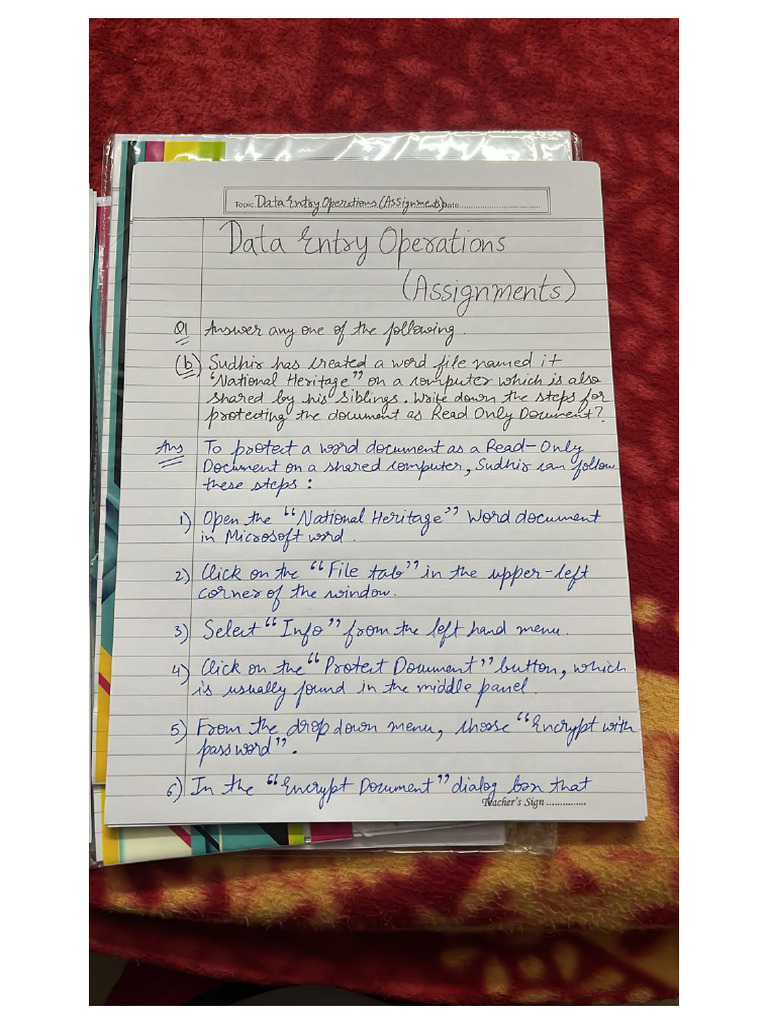 Topic Data Entry Operations (Assignments) Date
Data Entry Operations
(Assignments)
Q1 Answer any one of the following.
(b) Sudhir has created a word file named it
"National Heritage" on a computer which is also
shared by his siblings. Write down the steps for
protecting the document as Read Only Document?
Ans To protect a word document as a Read-Only
Document on a shared computer, Sudhir can follow
these steps :
1) Open the "National Heritage" Word document
in Microsoft word.
2) Click on the "File tab" in the upper-left
corner of the window.
3) Select "Info" from the left hand menu.
4) Click on the "Protect Document" button, which
is usually found in the middle panel.
5) From the drop down menu, choose "Encrypt with
password".
6) In the "Encrypt Document" dialog box that
Teacher's Sign ...............